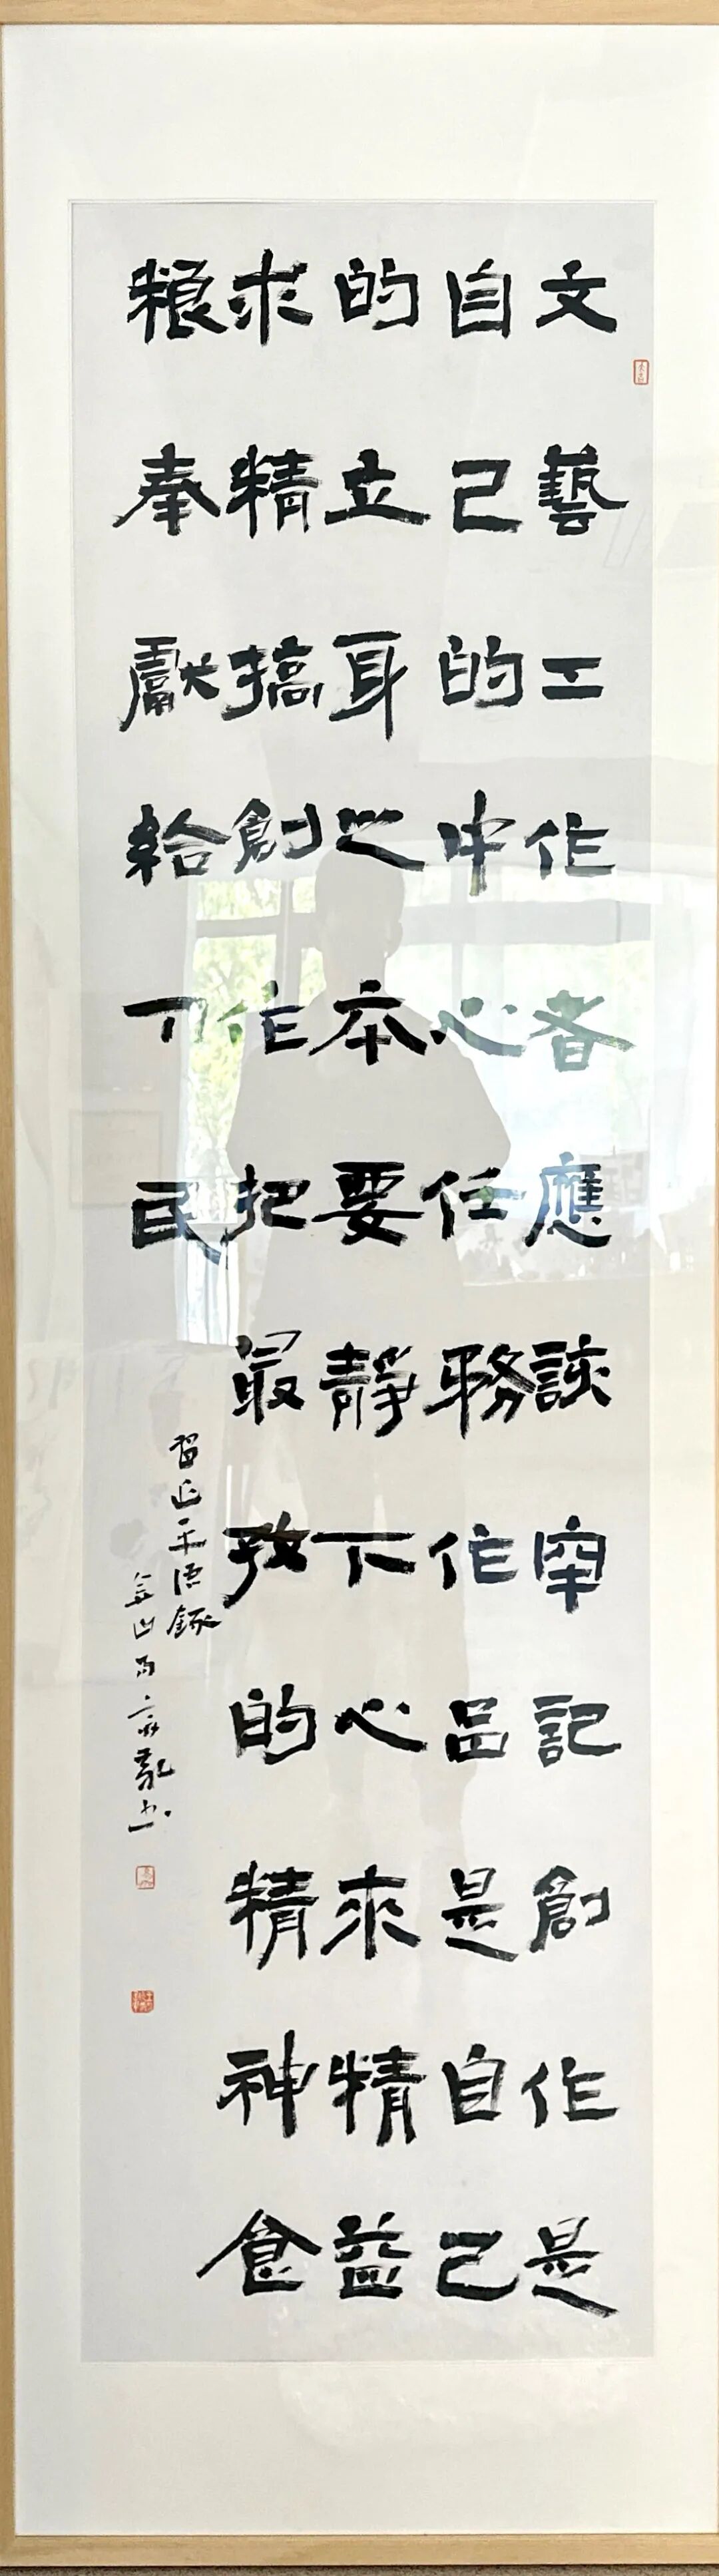 文藝工作者應該牢記創作是
自己的中心任務作品是自己
的立身之本要靜下心來精益
求精搞創作把最好的精神食
粮奉獻給人民
習近平語錄